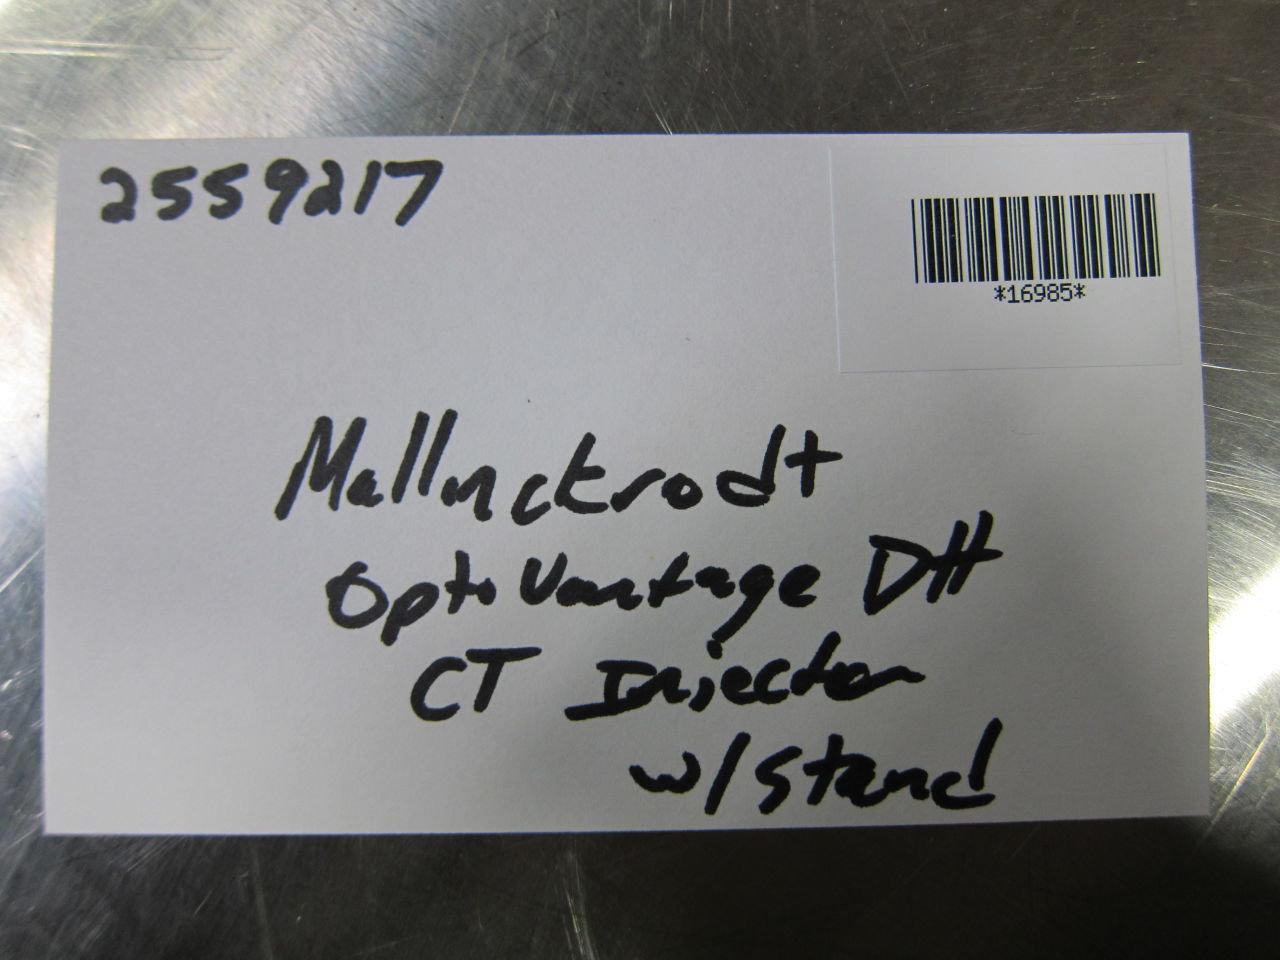 2559217
*16985*
Mallinckrodt
OptiVantage DH
CT Injector
w/stand